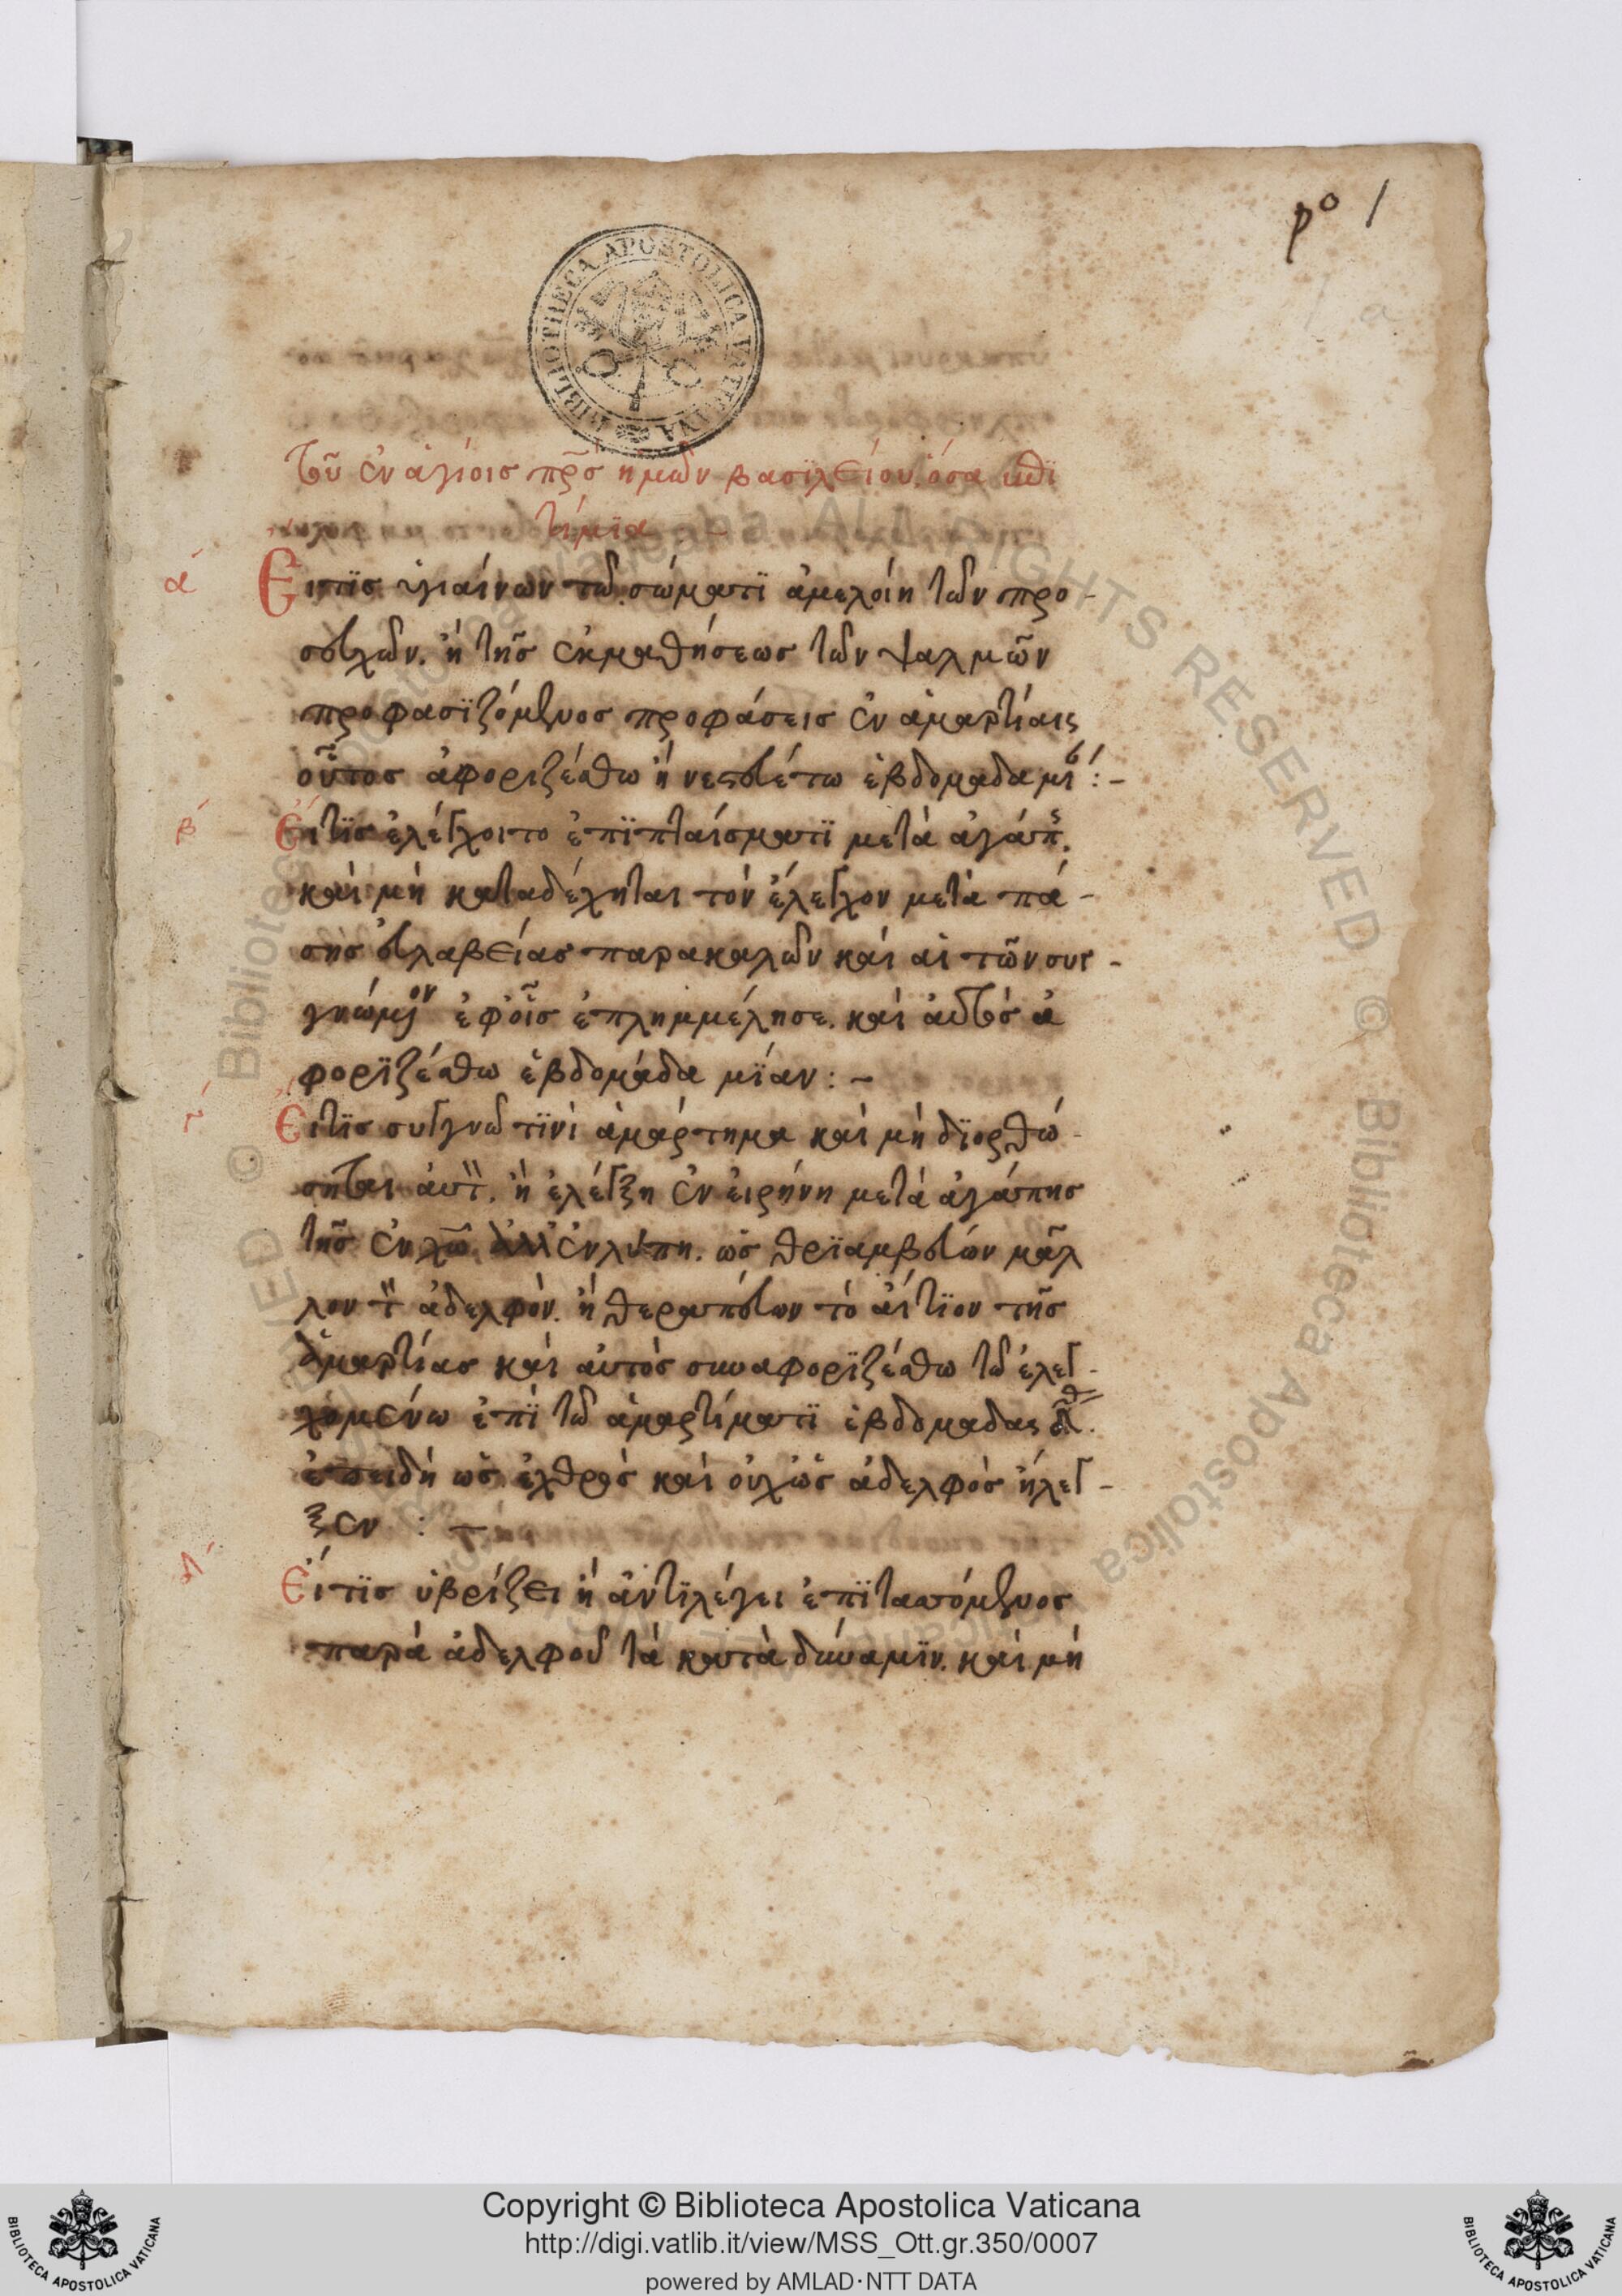 pº 1
a
BIBLIOTHECA APOSTOLICA VATICANA
τοῦ ἐν ἁγίοισ πρ̅σ ἡμῶν βασϊλείου. ὅσα ἐπϊ
τήμϊα
α΄
Εἴτϊσ ὑγιαίνων τῶ σώματϊ ἀμελοίη τῶν προ-
σευχῶν. ἢ τῆσ ἐκμαθήσεωσ τῶν ψαλμῶν
προφασϊζόμενοσ προφάσεισ ἐν ἁμαρτίαις
οὗτοσ ἀφοριζέσθω ἢ νεστευέτω ἑβδομαδα μι :-
β΄
Εἴτϊσ ἐλέγχοιτο ἐπϊ πταίσματϊ μετὰ ἀγάπ.
καὶ μὴ καταδέχηται τὸν ἔλεγχον μετὰ πά-
σησ εὐλαβείασ παρακαλῶν καὶ αἰτῶν συγ-
γνώμον ἐφ οἷσ ἐπλημμέλησε. καὶ αὐτὸσ ἀ
φορϊζέσθω ἑβδομάδα μϊαν : ~
γ΄
Εἴτϊσ συγγνῶ τϊνὶ ἁμάρτημα καὶ μὴ δϊορθώ-
σηται αὐτ. ἢ ἐλέγξη ἐν εἰρήνη μετὰ ἀγάπησ
τῆσ ἐν χ̅ω ἀλλ ἐν λύπη. ὡσ θρϊαμβεύων μᾶλ
λον τ ἀδελφὸν. ἢ θεραπεύων τὸ αἴτϊον τῆσ
ἁμαρτίασ καὶ αὐτὸσ συναφορϊζέσθω τῶ ἐλεγ-
χομένω ἐπϊ τῶ ἁμαρτίματϊ ἑβδομαδας
ἐπειδὴ ὡσ ἐχθρὸσ καὶ οὐχ ὡσ ἀδελφὸσ ἤλεγ-
ξεν : ~
δ΄
Εἴτϊσ ὑβρίζει ἢ ἀντϊλέγει ἐπϊταττόμενοσ
παρὰ ἀδελφοῦ τὰ κατὰ δύναμϊν. καὶ μὴ
Copyright © Biblioteca Apostolica Vaticana
http://digi.vatlib.it/view/MSS_Ott.gr.350/0007
powered by AMLAD·NTT DATA
BIBLIOTECA APOSTOLICA VATICANA
BIBLIOTECA APOSTOLICA VATICANA